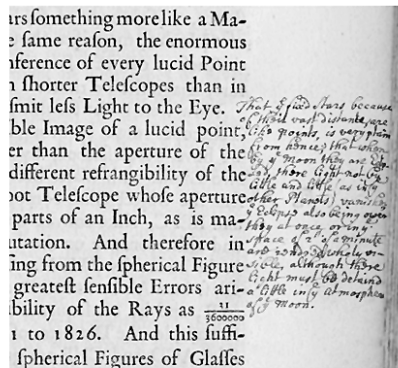 ars ſomething more like a Ma-
e ſame reaſon, the enormous
nference of every lucid Point
n ſhorter Teleſcopes than in
ſmit leſs Light to the Eye.
ble Image of a lucid point,
er than the aperture of the
different refrangibility of the
oot Teleſcope whoſe aperture
parts of an Inch, as is ma-
utation. And therefore in
ſing from the ſpherical Figure
greateſt ſenſible Errors ari-
ibility of the Rays as 21/3600000
1 to 1826. And this ſuffi-
ſpherical Figures of Glaſſes
That ye fixed Stars because
of their vast distance, are
like points, is very plain
from hence, that when
by ye Moon they are
there Light not by
little and little as in ye
other Planets) vanishes
ye Eclipse also being over
they at once or in ye
space of 2" of a minute
are wholy vi-
sible, although there
Light must be detaind
a little in ye Atmosphere
of ye Moon.